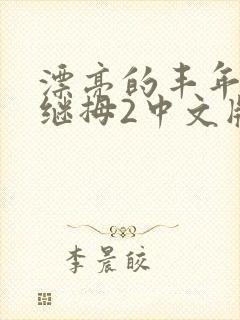 漂亮的丰年
继拇2中文版
李晨皎